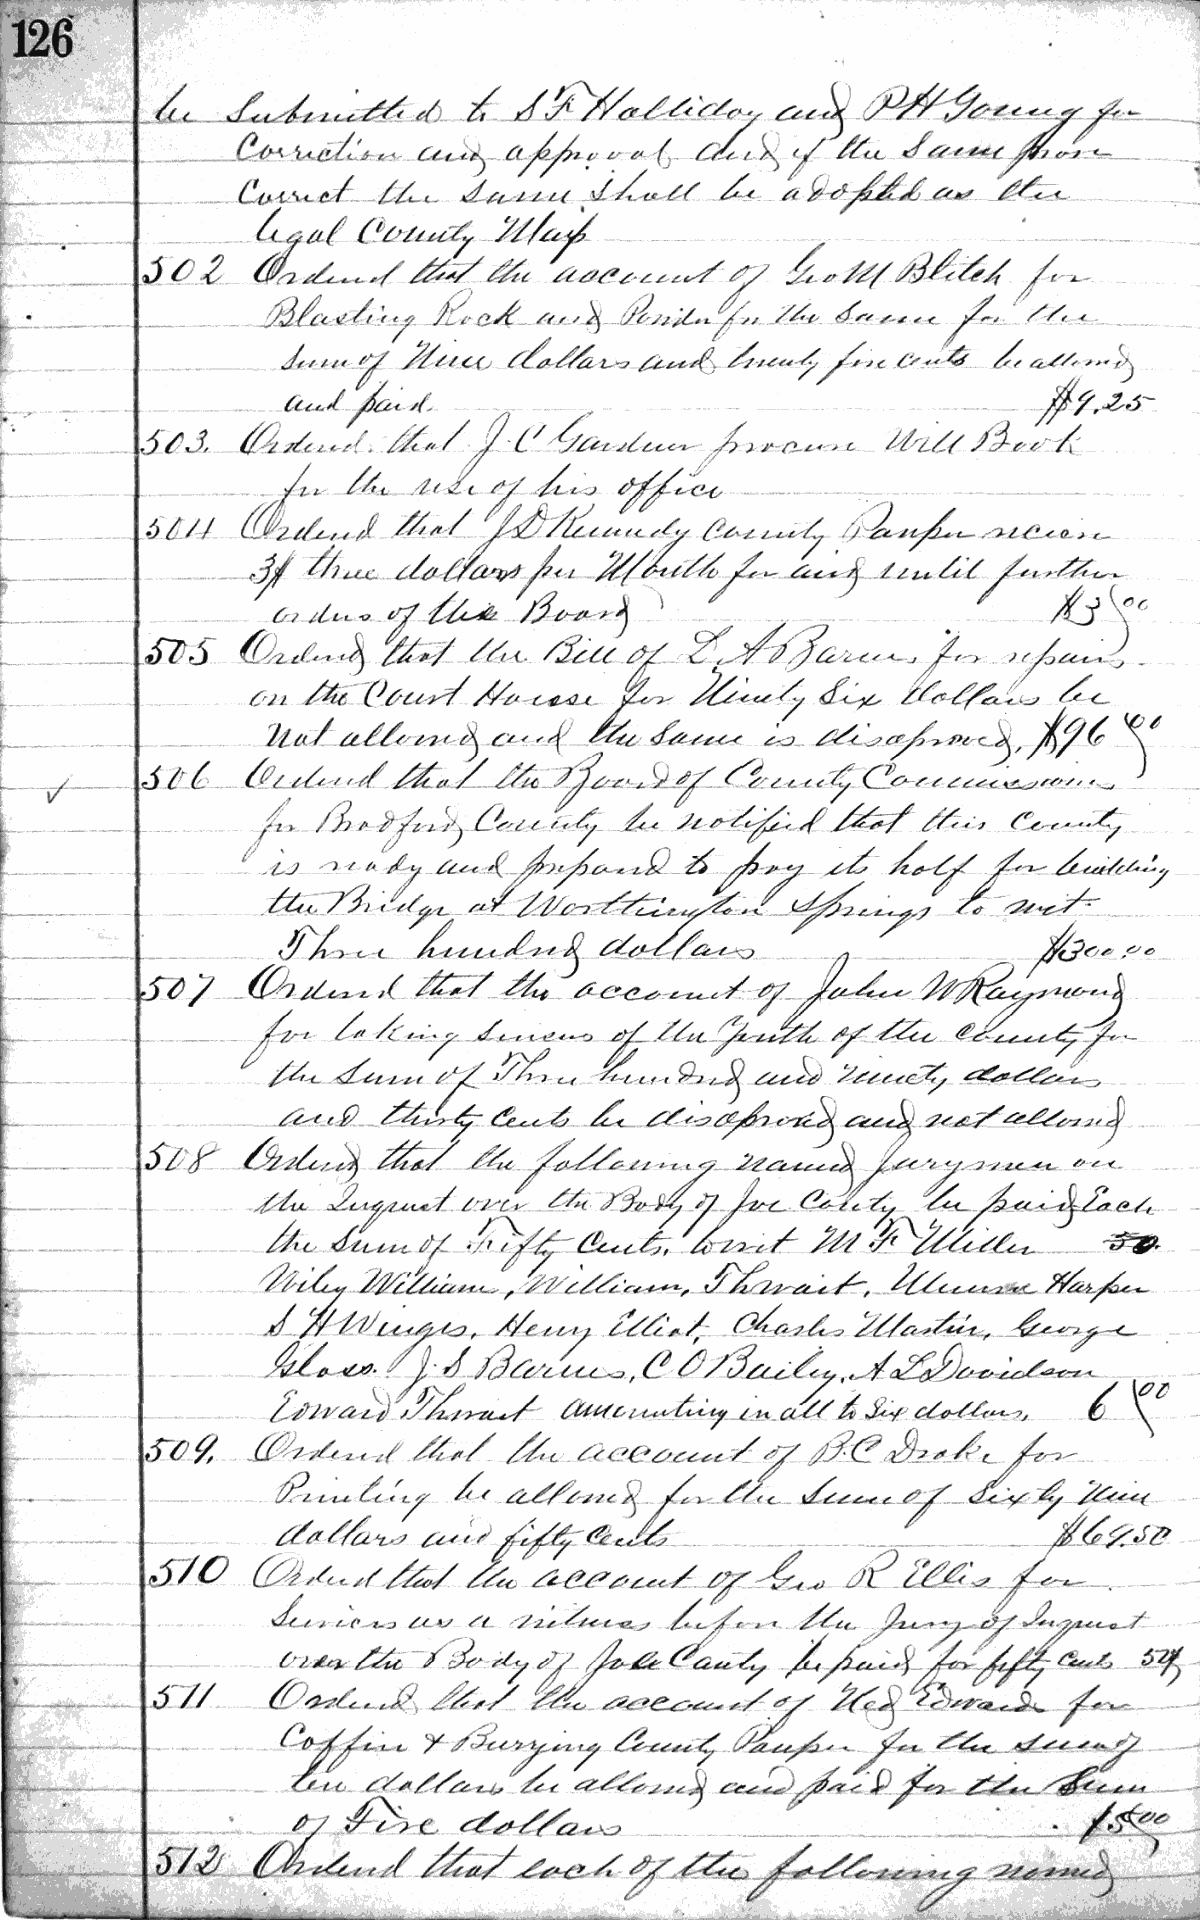 126
be Submitted to S F Halliday and P H Young for
Correction and approval and if the Same prove
Correct the same shall be adopted as the
legal County Map
502 Ordered that the account of Geo M Blitch for
Blasting Rock and Powder for the Same for the
sum of Nine dollars and twenty five cents be allowed
and paid. $9.25
503. Ordered that J. C Gardner procure Will Book
for the use of his office
504 Ordered that J D Kennedy County Pauper recieve
3$ three dollars per Month for and until further
orders of the Board $3 00
505 Ordered that the Bill of L. A Barnes for repairs
on the Court House for Ninety Six dollars be
Not allowed and the Same is disaproved, $96 00
506 Ordered that the Board of County Commissioners
for Bradford County be notified that this County
is ready and prepared to pay its half for building
the Bridge at Worthington Springs to wit
Three hundred dollars $300.00
507 Ordered that the account of John W Raymond
for taking Sincus of the Youth of the County for
the Sum of Three hundred and ninety dollars
and thirty Cents be disaproved and not allowed
508 Ordered that the following named Jurymen on
the Inquest over the Body of Joe Canty be paid Each
the Sum of Fifty Cents. towit M F Miller 50.
Wiley William, William, Thwait, Harper
S H Winges, Henry Elliot, Charles Martin, George
Glass. J. S Barnes, C O Bailey, A L Davidson
Edward Thwait amounting in all to Six dollars, 6 00
509. Ordered that the account of B. C Drake for
Printing be allowed for the Sum of Sixty Nine
dollars and fifty Cents $69.50
510 Ordered that the account of Geo R Ellis for
Services as a witness before the Jury of Inquest
over the Body of Joe Canty be paid for fifty Cents 50¢
511 Ordered that the account of Ned Edwards for
Coffin & Burying County Pauper for the sum of
ten dollars be allowed and paid for the Sum
of Five dollars $5 00
512 Ordered that each of the following named